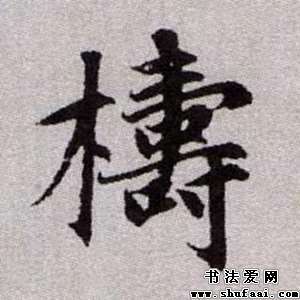 檮
书法爱网
www.shufaai.com